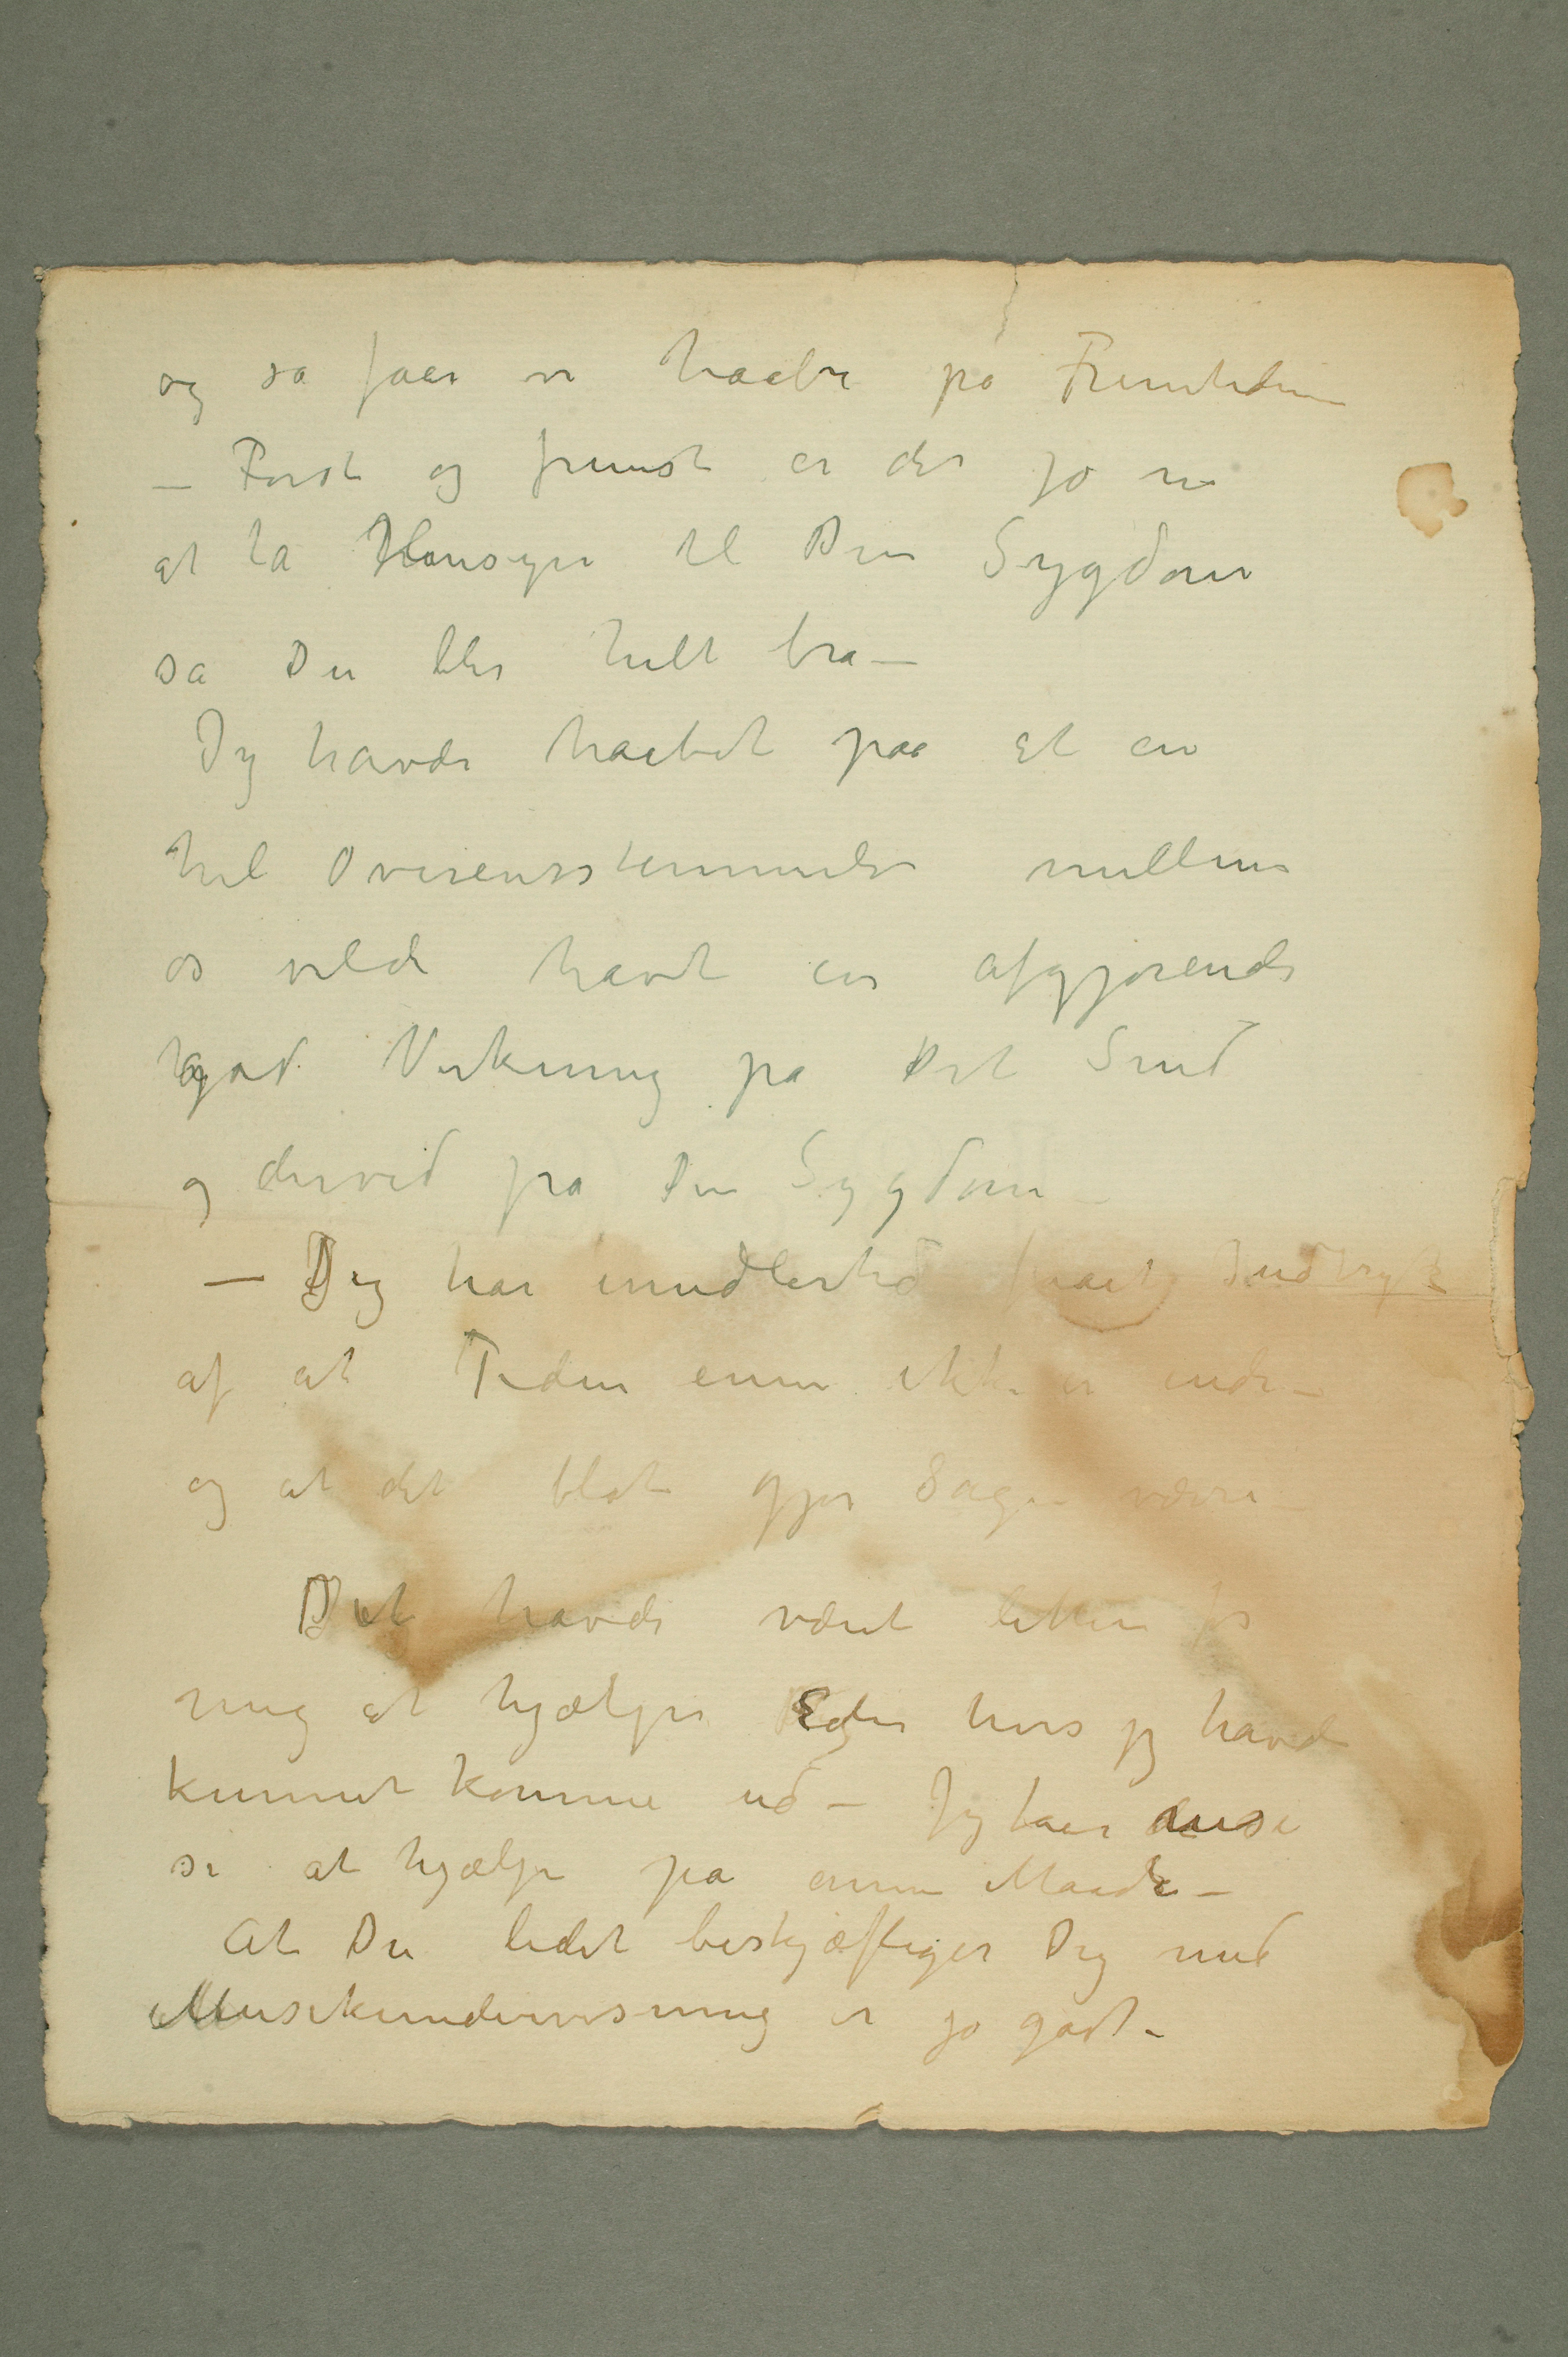 og så faar vi haabe på Fremtiden
– Først og fremst er det jo nu
at ta Hensyn til Din Sygdom
så Du blir helt bra –
Jeg havde haabet paa at en
hel Overensstemmelse mellem
os vilde havt en afgjørende
god Virkning på Dit Sind
og derved på Din Sygdom –
– Jeg har imidlertid faaet Indtryk
af at Tiden ennu ikke er inde –
og at det blot gjør Sagen værre –
Det havde været lettere for
mig at hjælpe Eder hvis jeg havde
kunnet komme ud – Jeg faar
se at hjælpe på annen Maade –
At Du lidet beskjæftiger Dig med
Musikundervisning er jo godt –